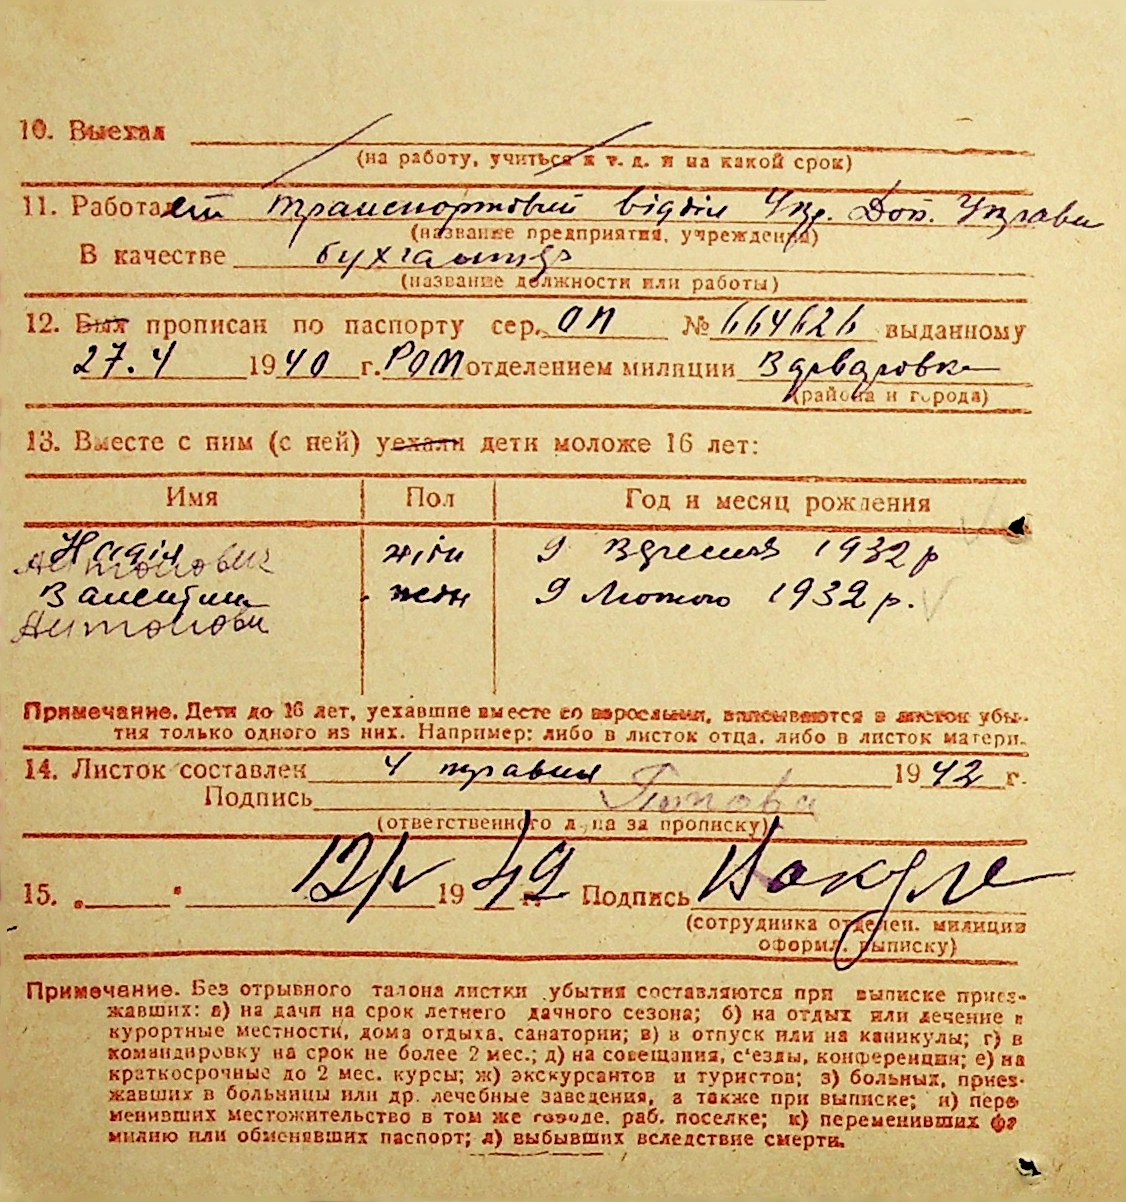 10. Выехал
(на работу, учиться и т. д. и на какой срок)
11. Работает транспортовий відділ Упр. Доп. Управи
(название предприятия, учреждения)
В качестве бухгалтер
(название должности или работы)
12. Был прописан по паспорту сер. ОП № 664626 выданному
27.4 1940 г. РОМ отделением милиции
(района и города)
13. Вместе с ним (с ней) уехали дети моложе 16 лет:
Имя Пол Год и месяц рождения
Надія жін 9 Вресня 1932 р
Антонович
Валентин жен 9 Лютого 1932 р.
Антонови
Примечание. Дети до 16 лет, уехавшие вместе со взрослыми, вписываются в листок убы-
тия только одного из них. Например: либо в листок отца, либо в листок матери.
14. Листок составлен 4 травня 1942 г.
Подпись Попова
(ответственного лица за прописку)
15. „ " 12/V 1942 г. Подпись
(сотрудника отделен. милиции
оформл. выписку)
Примечание. Без отрывного талона листки убытия составляются при выписке приез-
жавших: а) на дачи на срок летнего дачного сезона; б) на отдых или лечение в
курортные местности, дома отдыха, санатории; в) в отпуск или на каникулы; г) в
командировку на срок не более 2 мес.; д) на совещания, с'езды, конференции; е) на
краткосрочные до 2 мес. курсы; ж) экскурсантов и туристов; з) больных, приез-
жавших в больницы или др. лечебные заведения, а также при выписке; и) пере-
менивших местожительство в том же городе, раб. поселке; к) переменивших фа-
милию или обменявших паспорт; л) выбывших вследствие смерти.